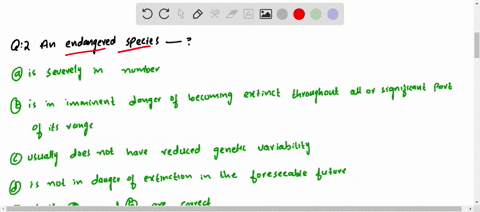 Q:2 An endangered species — ?
(a) is severely in number
(b) is in imminent danger of becoming extinct throughout all or significant part
of its range
(c) usually does not have reduced genetic variability
(d) is not in danger of extinction in the foreseeable future
are correct